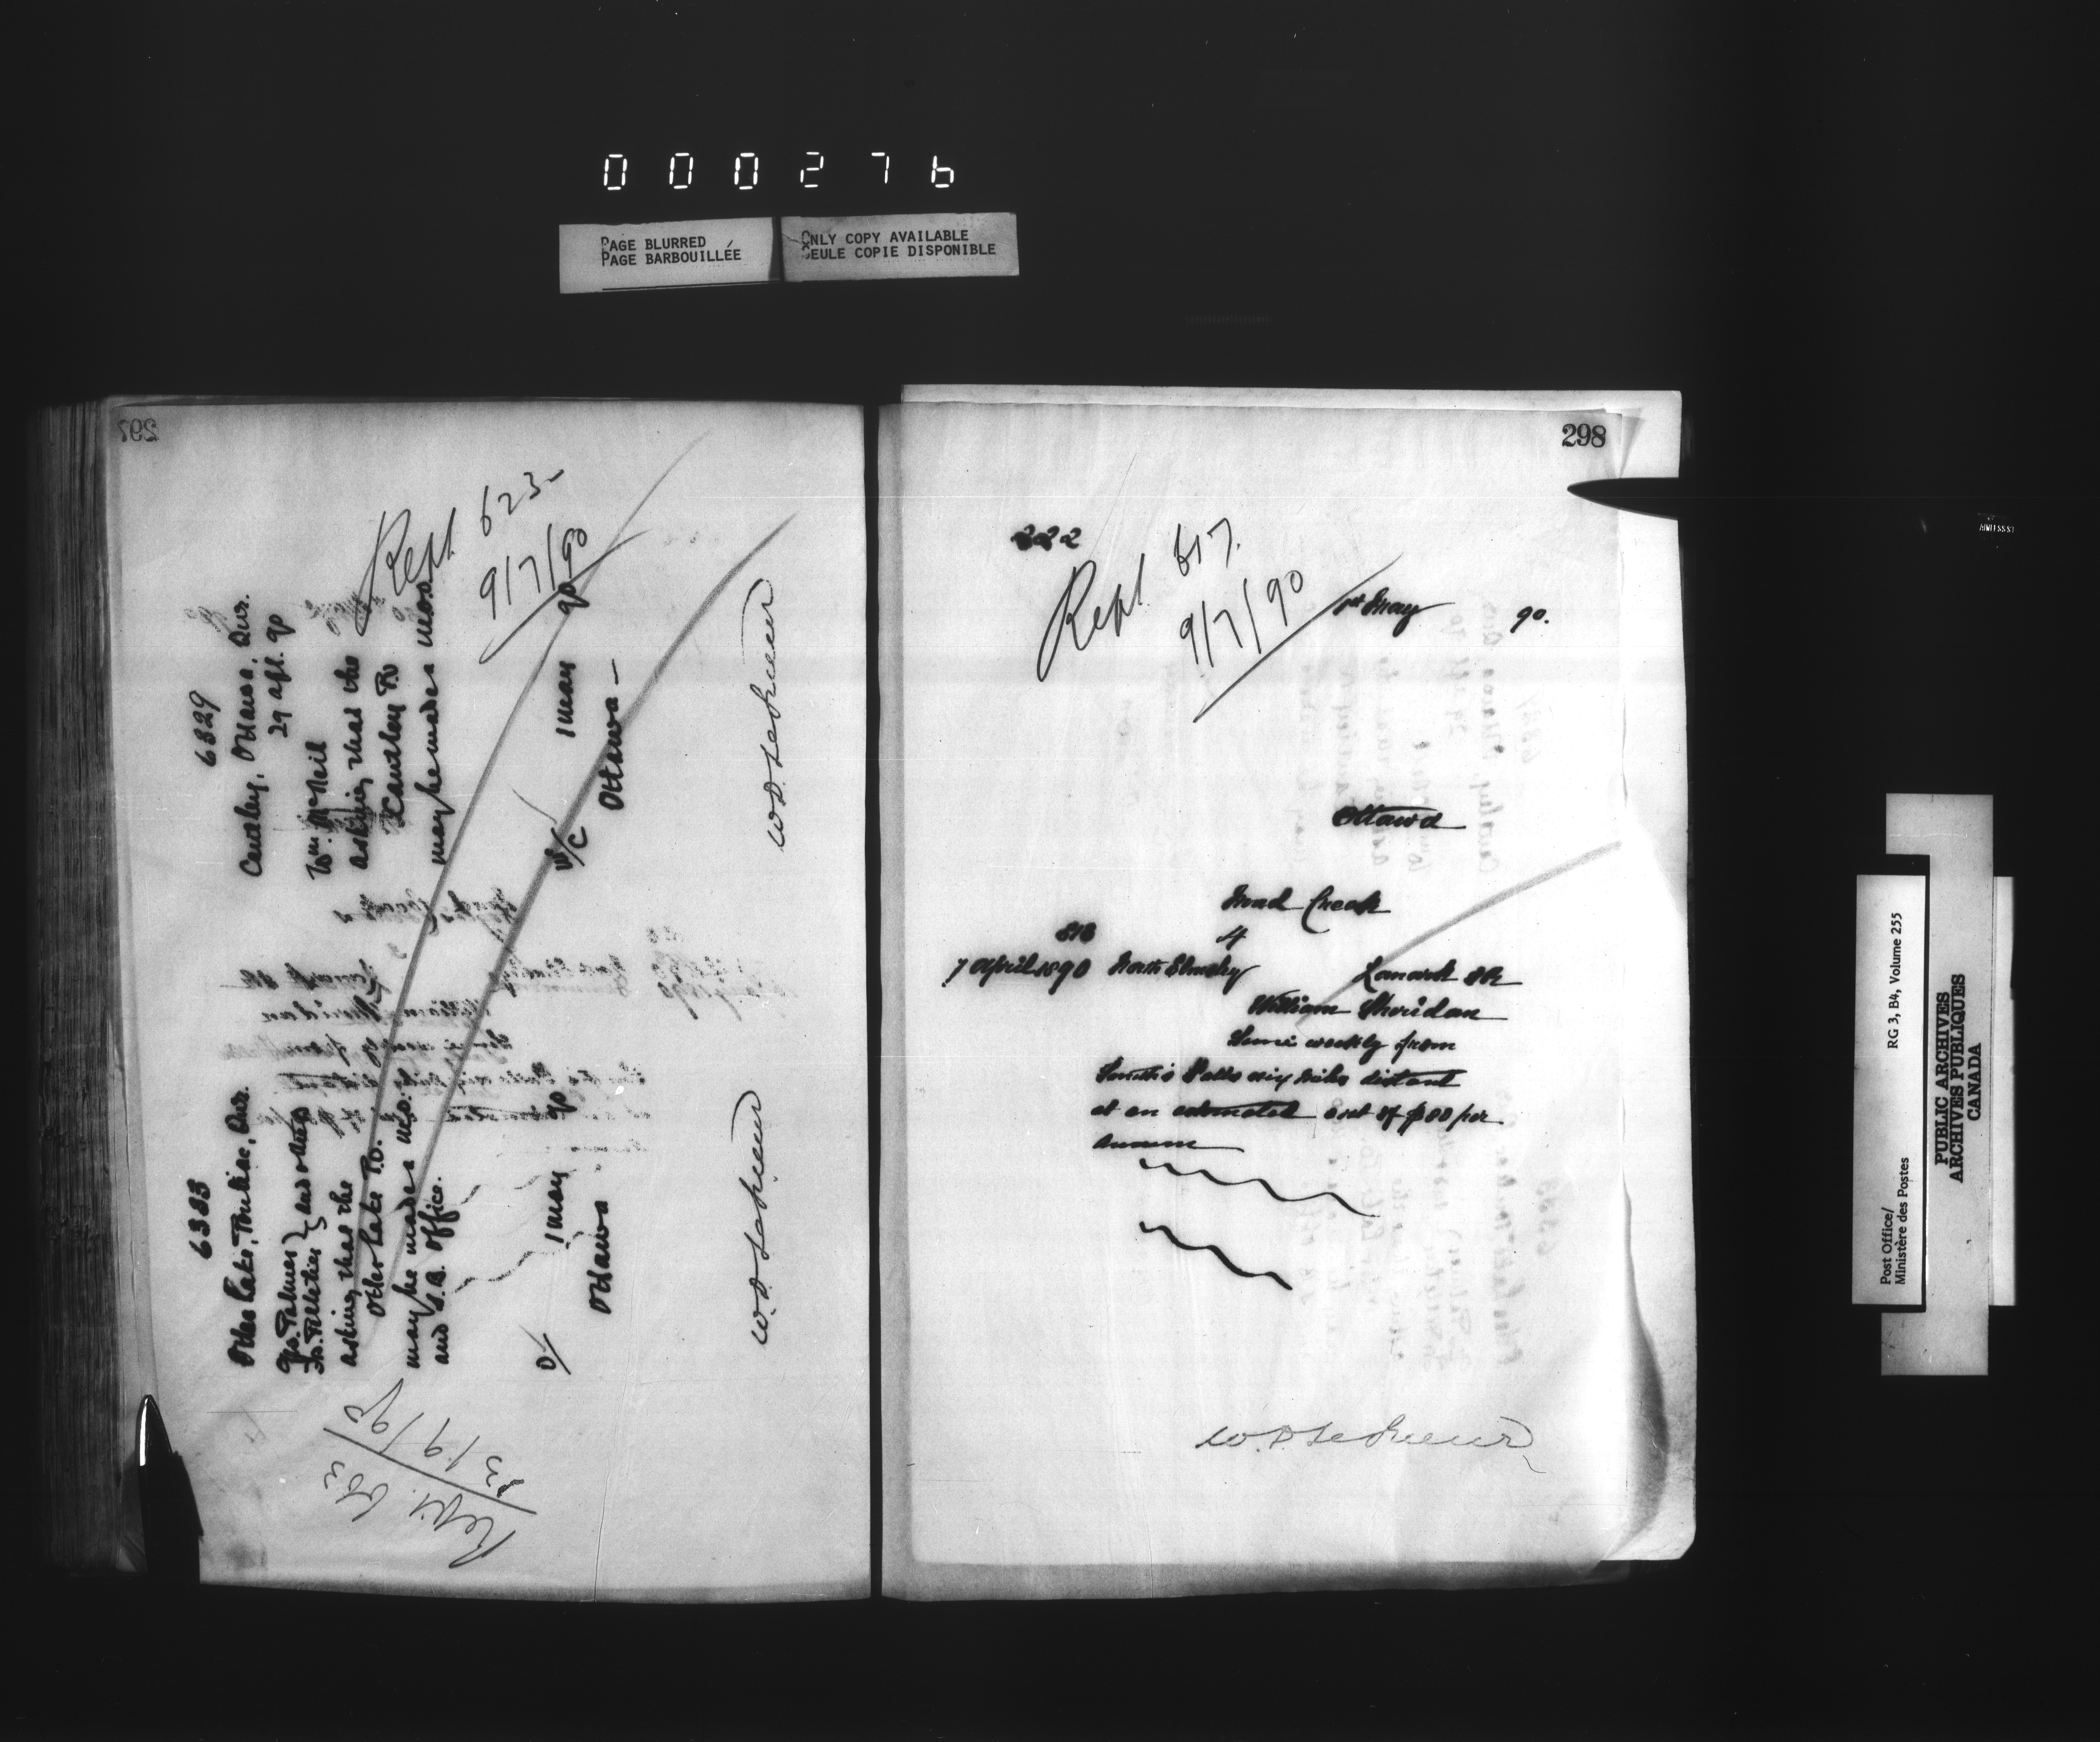 000276
PAGE BLURRED
PAGE BARBOUILLÉE
ONLY COPY AVAILABLE
SEULE COPIE DISPONIBLE
297
Rept 623-
9/7/90
6329
Cantley, Ottawa, Que.
29 apl. 90
Wm. McNeil
asking that the
Cantley P.O
may be made a M.O.O.
1 May 90
Ottawa-
W.D. LeSueur
6333
Otter Lake, Pontiac, Que.
Palmer
Pelletier } and others
asking that the
Otter Lake P.O.
may be made a M.O.
and S.B. Office.
1 May 90
Ottawa
W.D. LeSueur
Rept.
298
222
Rept 617.
9/7/90
1st May 90.
Ottawa
Mud Creek
818 4
7 April 1890 North Elmsley Lanark SR
William Sheridan
Semi weekly from
Smith's Falls six miles distant
at an estimated cost of $80 per
annum
W.D. LeSueur
Post Office/
Ministère des Postes
RG 3, B4, Volume 255
PUBLIC ARCHIVES
ARCHIVES PUBLIQUES
CANADA